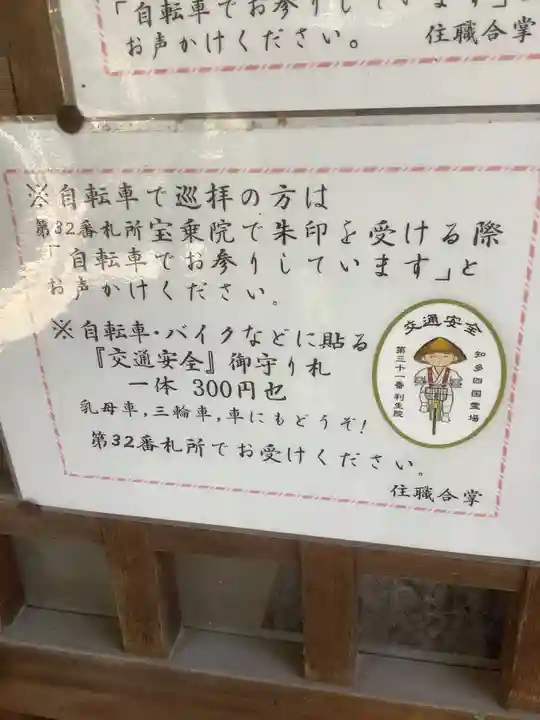 「自転車でお参りしています」と
お声かけください。 住職合掌
※自転車で巡拝の方は
第32番札所宝乗院で朱印を受ける際
「自転車でお参りしています」と
お声かけください。
※自転車・バイクなどに貼る
『交通安全』御守り札
一体 300円也
乳母車,三輪車,車にもどうぞ!
第32番札所でお受けください。
住職合掌
交通安全
知多四国霊場
第三十一番利生院